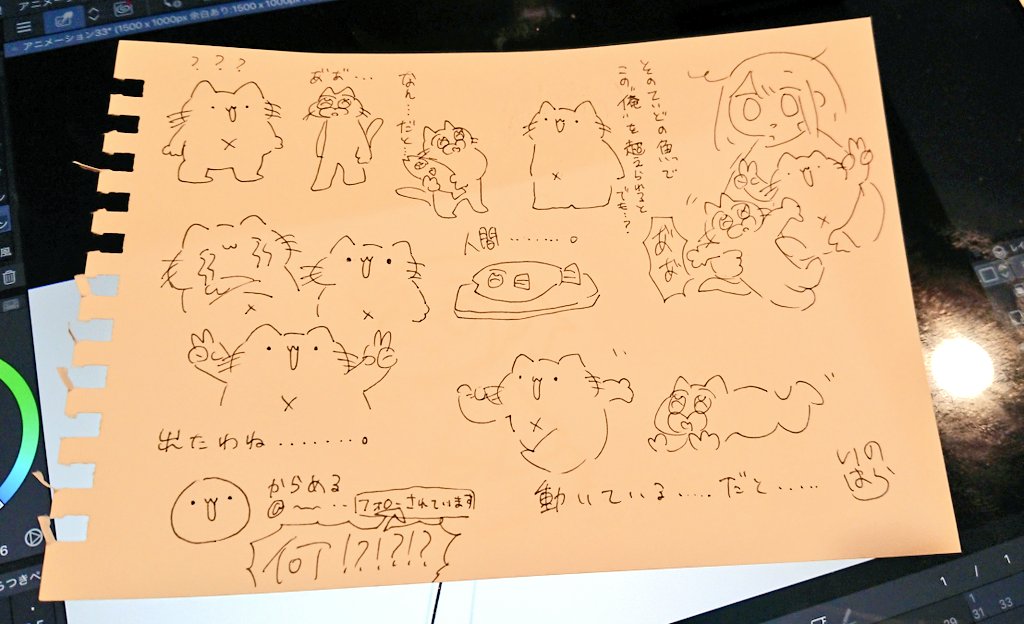 アニメーション33* (1500 x 1000px 余白あり:1500 x 1000px
? ? ?
おお…
なん…だと
そのていどの魚で
この"俺"を超えられると
でも…?
おおお
人間……。
出たわね……。
からめる
@~‥
フォローされています
何!?!?!?
動いている……だと……
いのはら
1 / 1
1
31
33